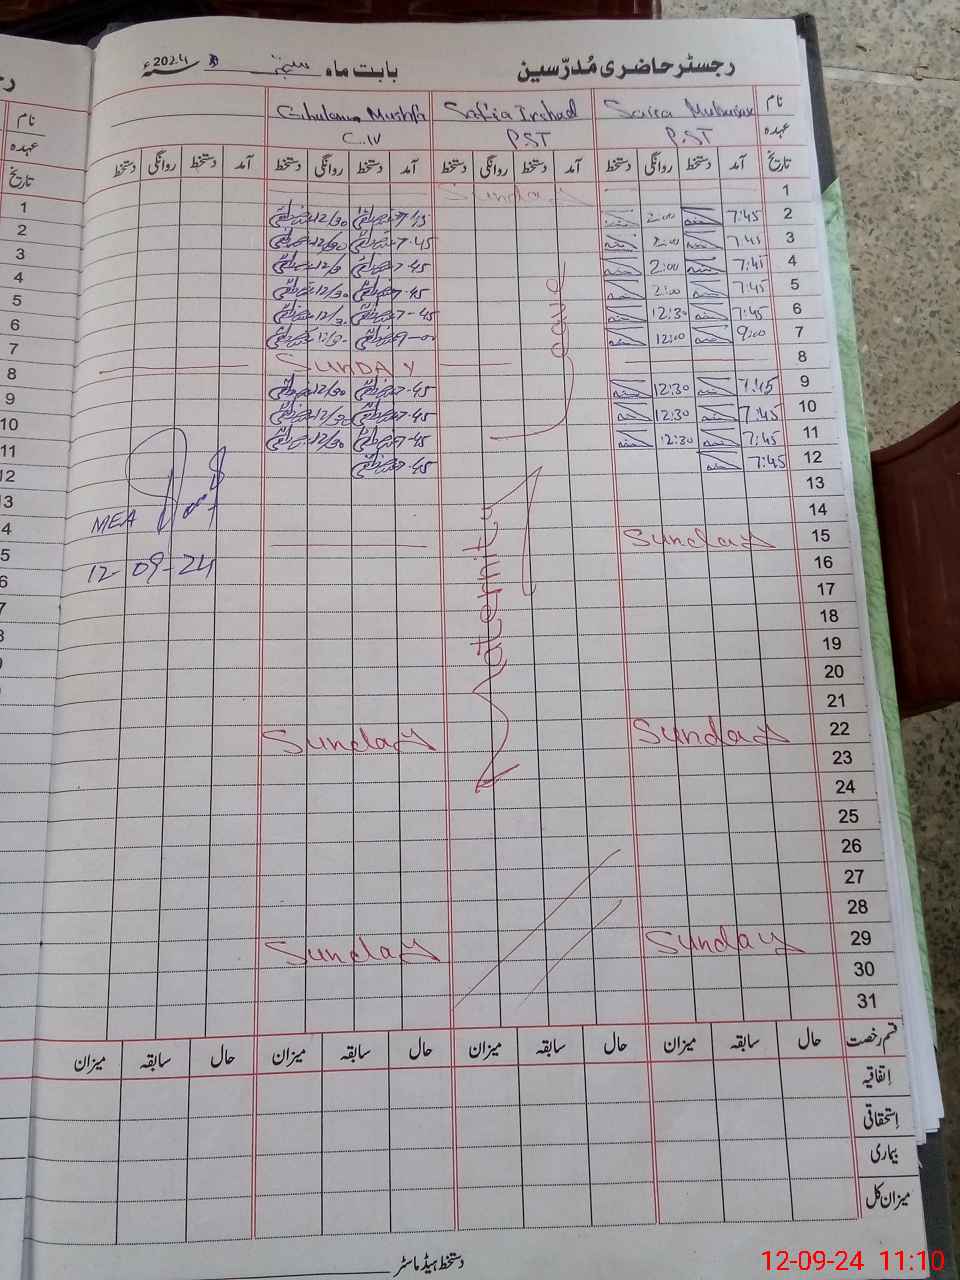 رجسٹر حاضری مُدرّسین بابت ماہ ستمبر سنہ 2024ء
نام Saira Safia Irshad Ghulam Mustafa
عہدہ P.ST P.ST C.IV
تاریخ آمد دستخط روانگی دستخط آمد دستخط روانگی دستخط آمد دستخط روانگی دستخط آمد دستخط روانگی دستخط
1 Sunday
2 7:45 2:00 7-45 12/30
3 7:45 2:00 7-45 12/30
4 7:45 2:00 7-45 12/3
5 7:45 2:00 7-45 12/30
6 7:45 12:30 7-45 12/3.
7 9:00 12:00 9-00
8 SUNDAY
9 7:45 12:30 7-45 12/30
10 7:45 12:30 7-45 12/30
11 7:45 12:30 7-45 12/30
12 7:45 7-45
13
14
15 Sunday
16
17
18
19
20
21
22 Sunday Sunday
23
24
25
26
27
28
29 Sunday Sunday
30
31
Maternity leave
MEA
12-09-24
قسم رخصت حال سابقہ میزان حال سابقہ میزان حال سابقہ میزان حال سابقہ میزان
اِتفاقیہ
اِستحقاقی
بیماری
میزان کل
دستخط ہیڈ ماسٹر
نام
عہدہ
تاریخ
1
2
3
4
5
6
7
8
9
10
11
12
13
12-09-24 11:10